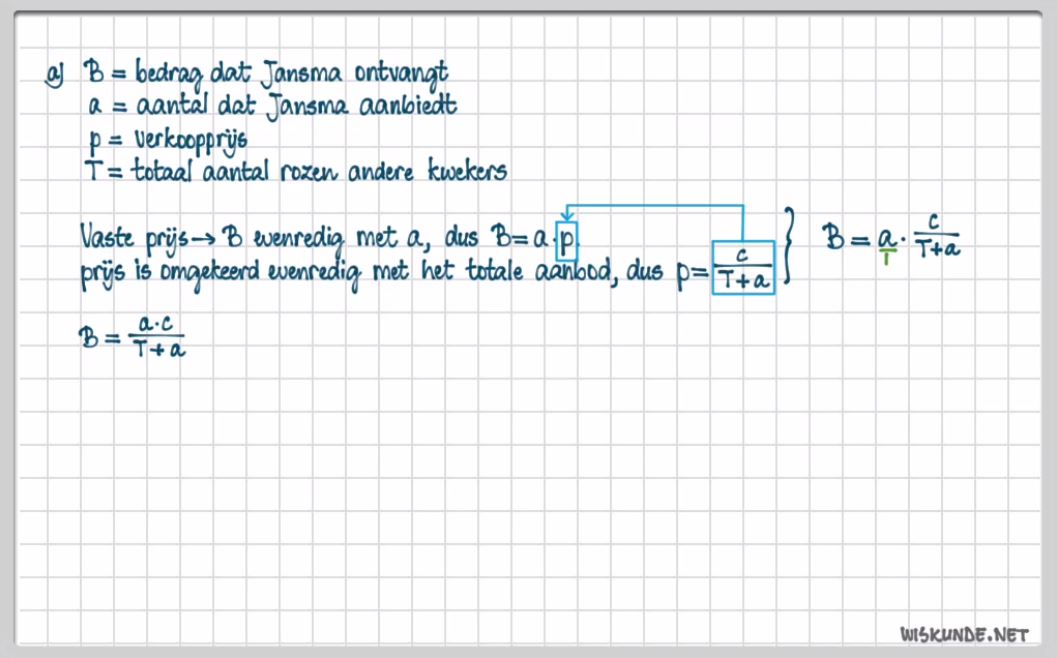 a) B = bedrag dat Jansma ontvangt
a = aantal dat Jansma aanbiedt
p = verkoopprijs
T = totaal aantal rozen andere kwekers
Vaste prijs → B evenredig met a, dus B = a · p.
prijs is omgekeerd evenredig met het totale aanbod, dus p = c/(T+a) } B = a/1 · c/(T+a)
B = a·c/(T+a)
WISKUNDE.NET